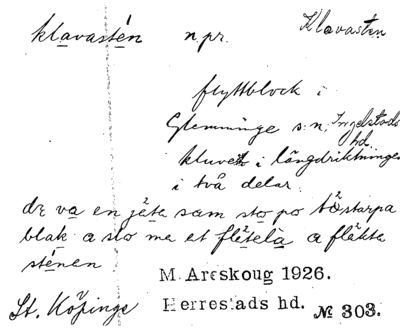 klavastén n pr. Klavasten
flyttblock i
Glemminge s:n, Ingelstads hd.
kluvet i längdriktningen
i två delar.
dɛ va en jɛ̈tɛ sam sto po
blak a slo me et flɛ̈telɑ a flɛ̈kte
sténen.
M. Areskoug 1926.
St. Köpinge Herrestads hd. № 303.